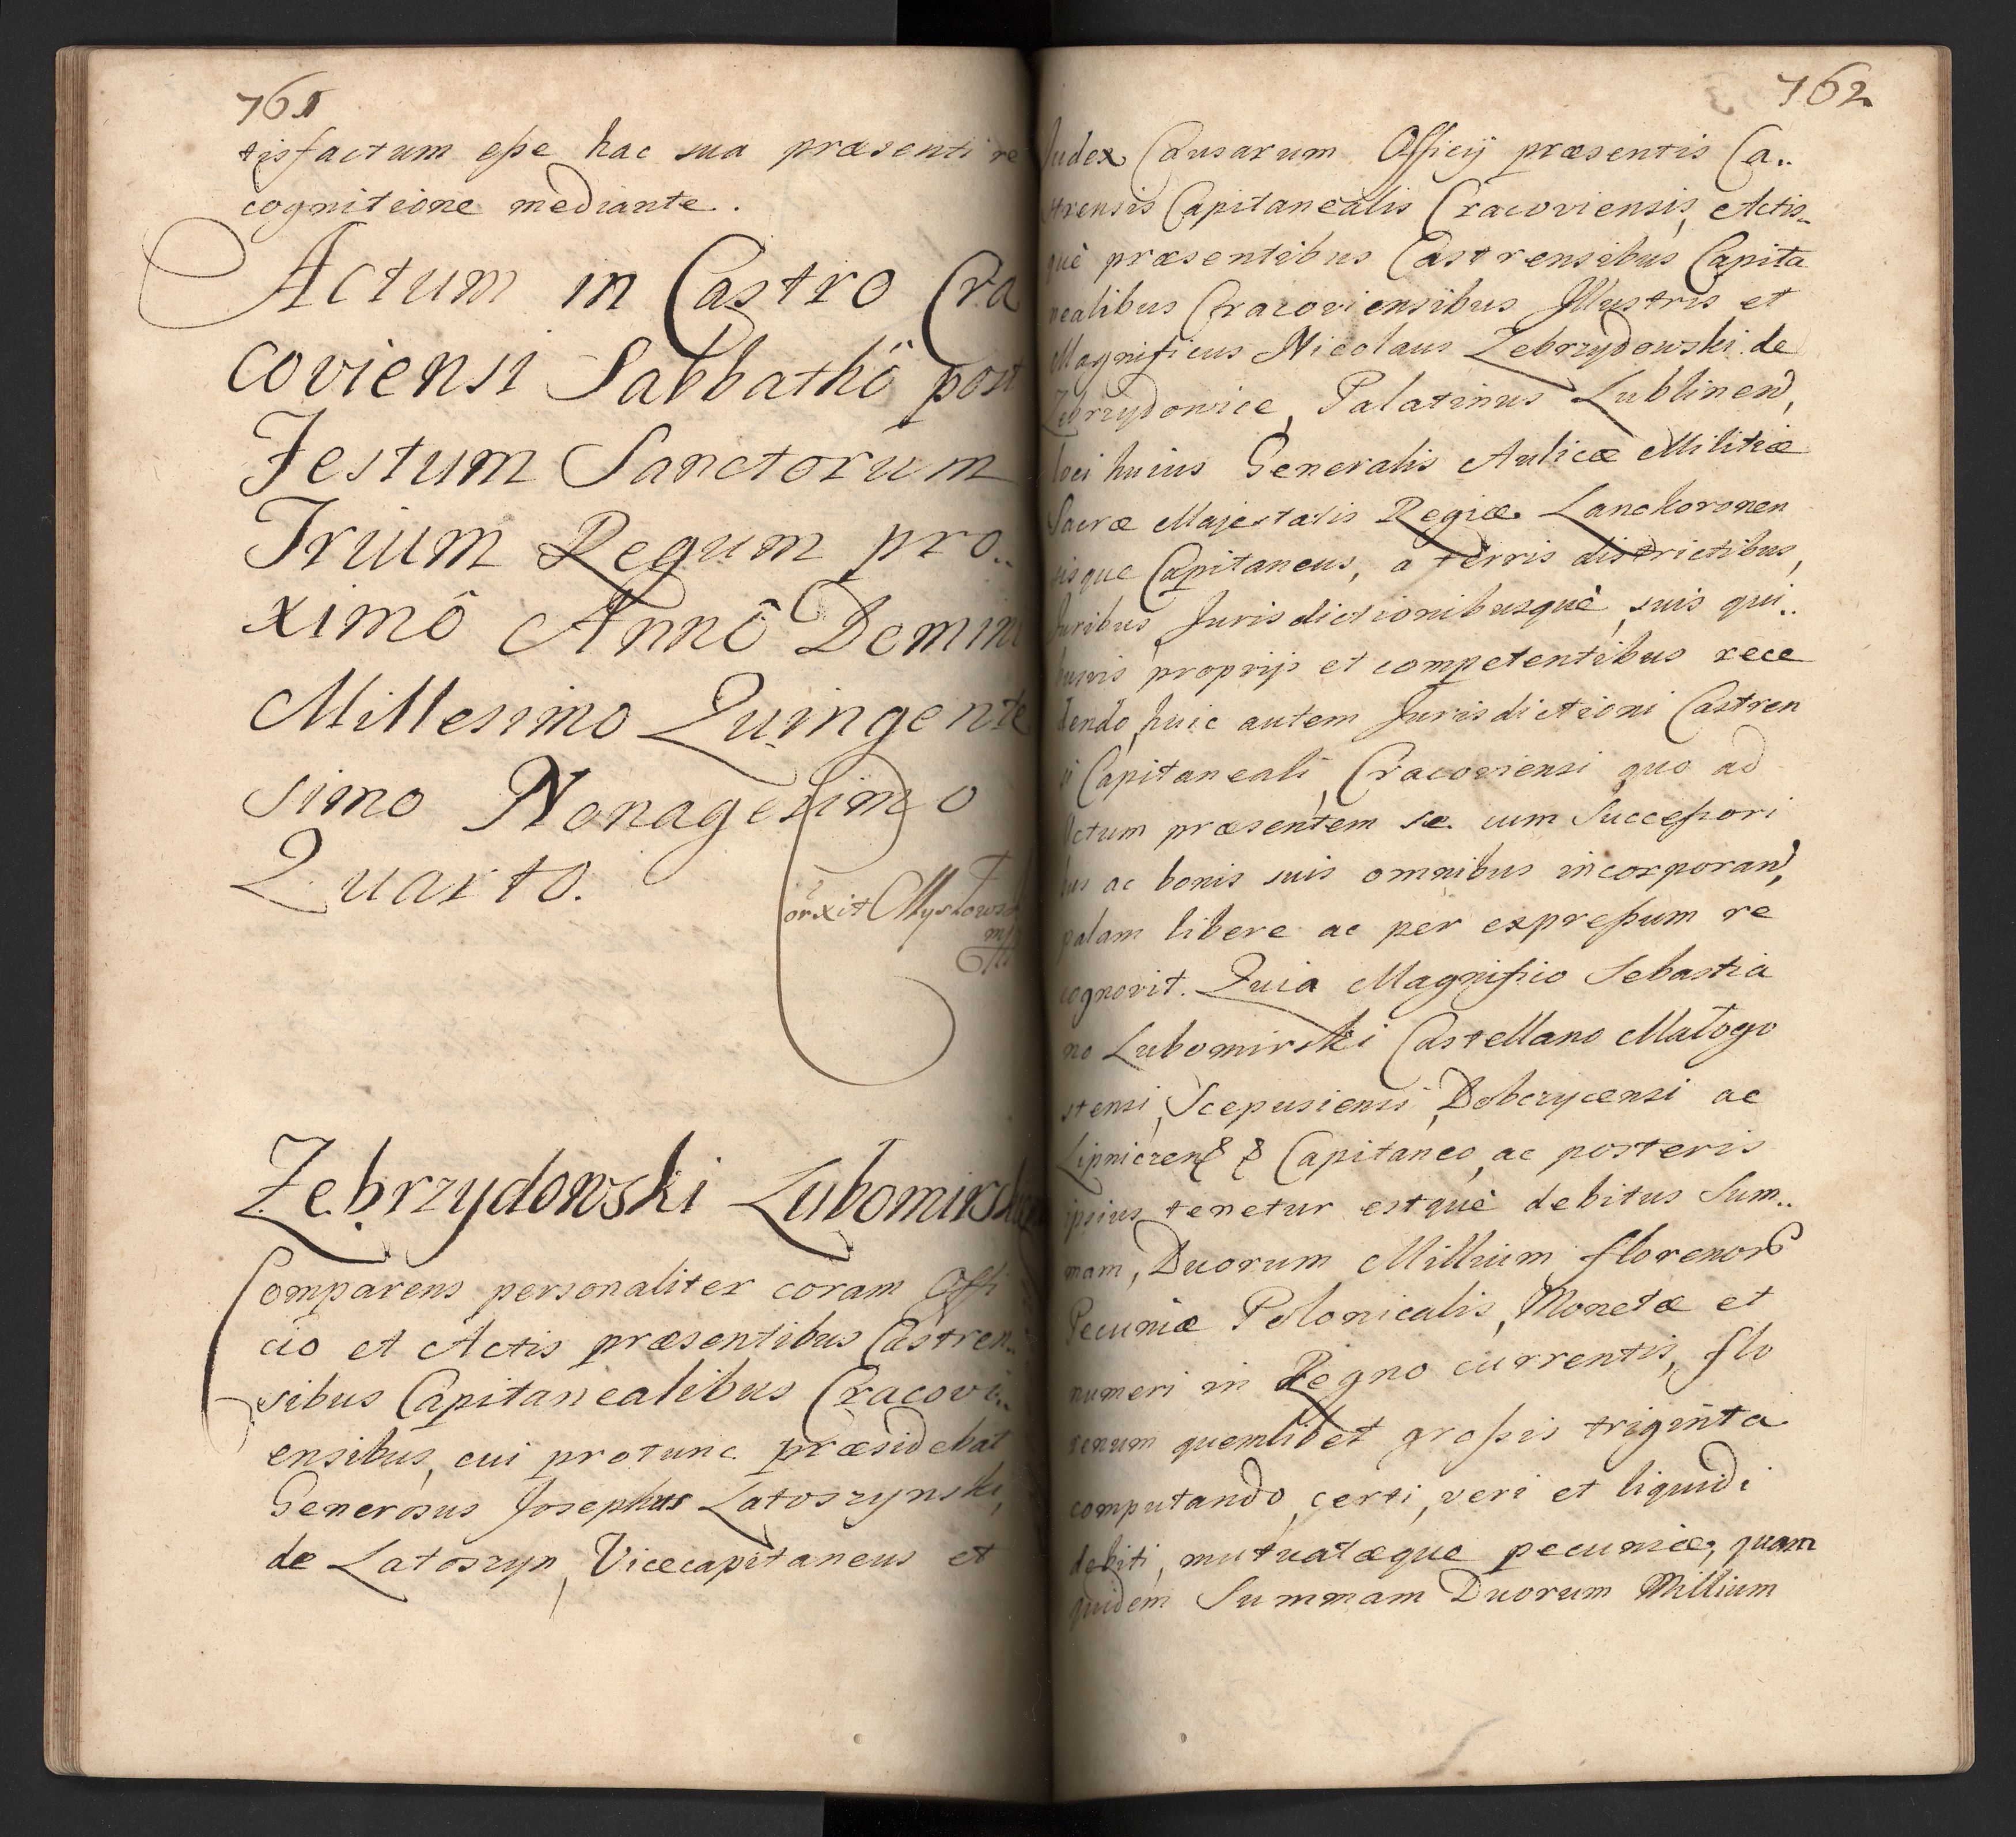 761
tisfactum eße hac sua præsenti re
cognitione mediante.
Actum in Castro Cra
coviensi Sabbathô post
Festum Sanctorum
Trium Regum pro..
ximô Annô Domini
Millesimo Quingente
simo Nonagesimo
Quarto.
Zebrzydowski Lubomirski
Comparens personaliter coram Offi
cio et Actis præsentibus Castren..
sibus Capitanealibus Cracovi..
ensibus, cui protunc præsidebat
Generosus Josephus Latoszynski,
de Latoszyn, Vicecapitaneus et
762
Judex Causarum Officij præsentis Ca..
strensis Capitanealis Cracoviensis, Actis-
què præsentibus Castrensibus Capita
nealibus Cracoviensibus Jllustris et
Magnificus Nicolaus Zebrzydowski de
Zebrzydowice, Palatinus Lublinen,
loci huius Generalis Aulicæ Militiæ
Sacræ Majestatis Regiæ Lanckoronen
sisque Capitaneus, a terris districtibus,
Juribus Jurisdictionibusquè suis qui..
busvis proprijs et competentibus rece
dendo, huic autem Jurisdictioni Castren
si Capitaneali Cracoviensi quo ad
Actum præsentem se cum Succeßori
bus ac bonis suis omnibus incorporan,
palam libere ac per expreßum re
cognovit. Quia Magnifico Sebastia
no Lubomirski Castellano Małogo
stensi, Scepusiensi, Dobczycensi ac
Lipnicen Capitaneo, ac posteris
ipsius tenetur estquè debitus Sum..
mam, Duorum Millium florenor
Pecuniæ Polonicalis, Monetæ et
numeri in Regno currentis, flo
renum quemlibet großis triginta
computando, certi, veri et liquidi
debiti, mutuatæque pecuniæ, quam
quidem Summam Duorum Millium